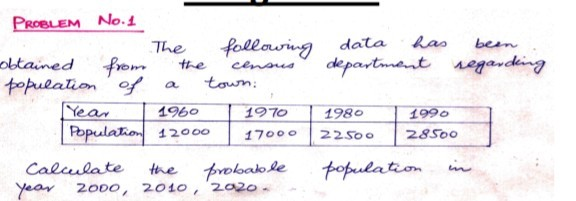 PROBLEM No.1
The following data has been
obtained from the census department regarding
population of a town:
Year 1960 1970 1980 1990
Population 12000 17000 22500 28500
Calculate the probabole population in
year 2000, 2010, 2020.